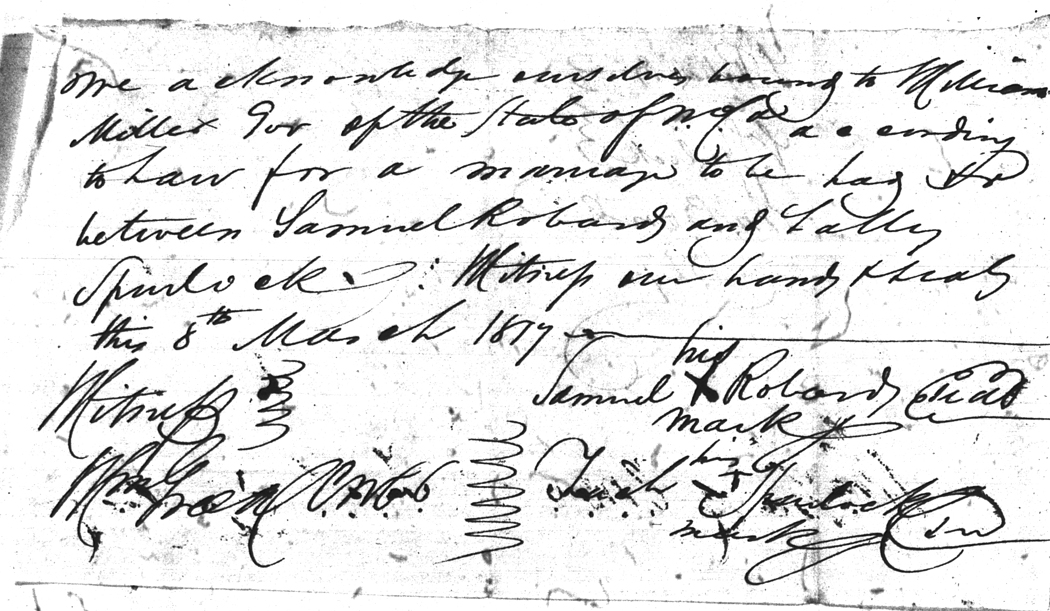 We acknowledge ourselves bound to William
Miller Gov of the State of N. Ca according
to Law for a marriage to be had &c
between Samuel Robards and Sally
Spurlock : Witness our hands & seals
this 8th March 1817
his
Witness Samuel X Robards Seal
mark
his
Wm Green Spurlock
mark